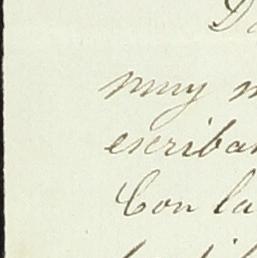 D
muy m
escriban
Con la